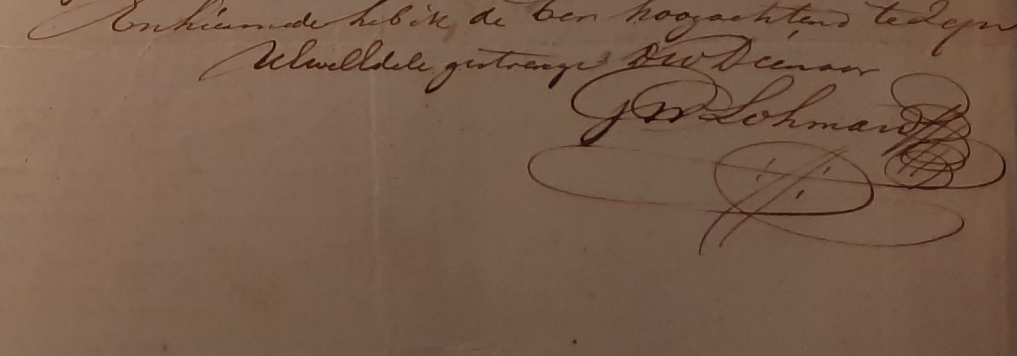 En hiermede heb ik de Eer hoogachtend te Zijn
UEwelEdele gestrenge DW Dienaar
G W Lohman